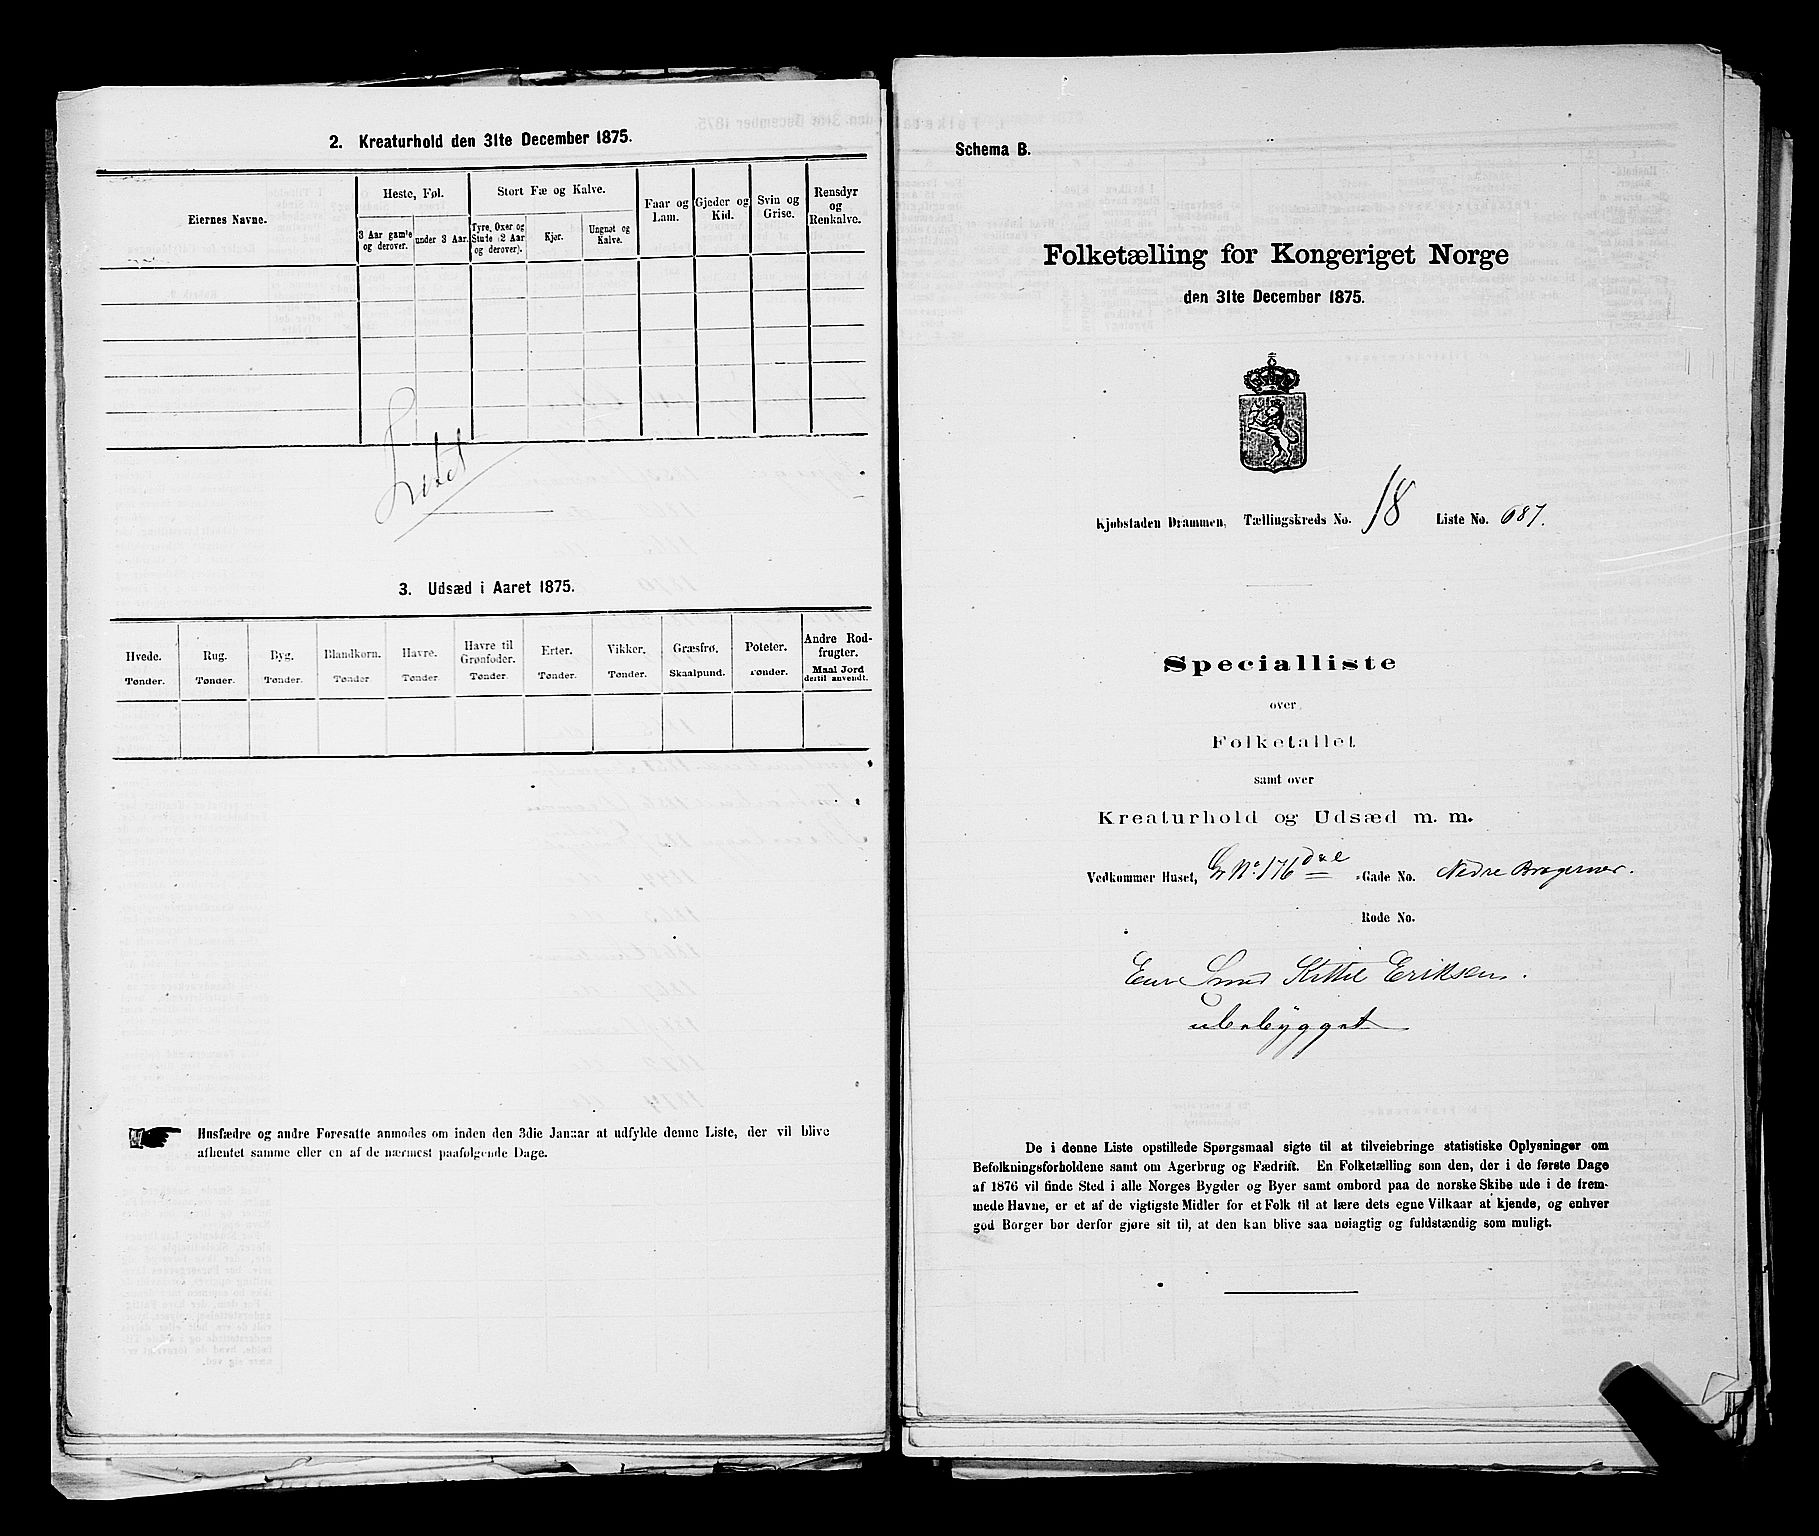 2. Kreaturhold den 31te December 1875.
Eiernes Navne.
Heste, Føl.
3 Aar gamle og derover.
under 3 Aar.
Stort Fæ og Kalve.
Tyre, Oxer og Stude (2 Aar og derover).
Kjør.
Ungnøt og Kalve.
Faar og Lam.
Gjeder og Kid.
Svin og Grise.
Rensdyr og Renkalve.
Intet
3. Udsæd i Aaret 1875.
Hvede. Tønder.
Rug. Tønder.
Byg. Tønder.
Blandkorn. Tønder.
Havre. Tønder.
Havre til Grønfoder. Tønder.
Erter. Tønder.
Vikker. Tønder.
Græsfrø. Skaalpund.
Poteter. Tønder.
Andre Rodfrugter. Maal Jord dertil anvendt.
Husfædre og andre Foresatte anmodes om inden den 3die Januar at udfylde denne Liste, der vil blive
afhentet samme eller en af de nærmest paafølgende Dage.
Schema B.
Folketælling for Kongeriget Norge
den 31te December 1875.
Kjøbstaden Drammen, Tællingskreds No. 18 Liste No. 687.
Specialliste
over
Folketallet
samt over
Kreaturhold og Udsæd m. m.
Vedkommer Huset, Gr No. 176 d & e Gade No. Nedre Bragernes.
Rode No.
Eier Kittil Eriksen.
ubebygget
De i denne Liste opstillede Spørgsmaal sigte til at tilveiebringe statistiske Oplysninger om
Befolkningsforholdene samt om Agerbrug og Fædrift. En Folketælling som den, der i de første Dage
af 1876 vil finde Sted i alle Norges Bygder og Byer samt ombord paa de norske Skibe ude i de frem-
mede Havne, er et af de vigtigste Midler for et Folk til at lære dets egne Vilkaar at kjende, og enhver
god Borger bør derfor gjøre sit til, at den kan blive saa nøiagtig og fuldstændig som muligt.